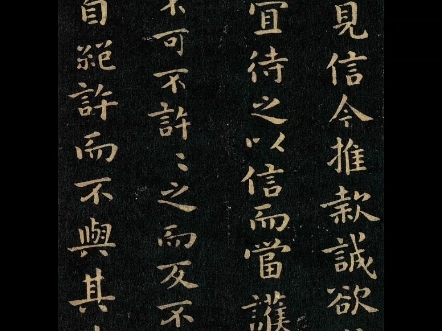 見信今推款誠欲
宜待之以信而當護
不可不許〻之而反不
自絕許而不與其